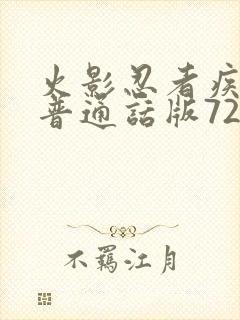 火影忍者疾
普通話版72
不羈江月